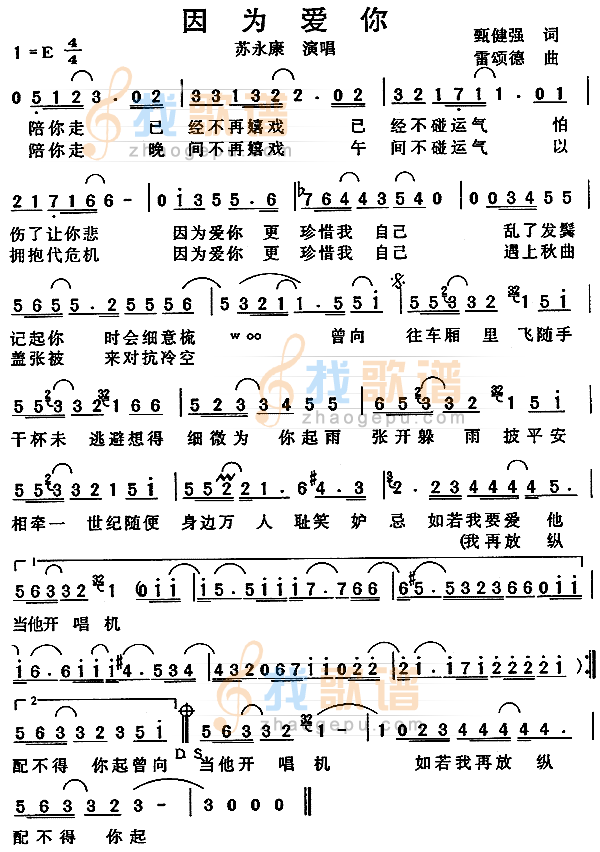 因为爱你
1=E 4/4 苏永康 演唱 甄健强 词
雷颂德 曲
0 5 1 2 3 . 0 2 | 3 3 1 3 2 2 . 0 2 | 3 2 1 7 1 1 . 0 1 |
陪你走 已 经不再嬉戏 已 经不碰运气 怕
陪你走 晚 间不再嬉戏 午 间不碰运气 以
2 1 7 1 6 6 - | 0 i 3 5 5 . 6 | b7 6 4 4 3 5 4 0 | 0 0 3 4 5 5
伤了让你悲 因为爱你 更 珍惜我 自己 乱了发鬓
拥抱代危机 因为爱你 更 珍惜我 自己 遇上秋曲
5 6 5 5 . 2 5 5 5 6 | 5 3 2 1 1 . 5 5 i | 5 5 2 3 3 2 32 1 5 5
记起你 时会细意梳 woo 曾向 往车厢 里 飞随手
盖张被 来对抗冷空
5 5 2 3 3 2 32 1 6 6 | 2 2 2 3 4 5 5 | 6 5 2 3 3 2 32 1 5 i |
干杯未 逃避想得 细微为 你起雨 张开躲 雨 披平安
5 5 2 3 3 2 1 5 i | 5 5 2 2 1 . 6 #3 | 2 . 2 3 4 4 4 4 5 . |
相牵一 世纪随便 身边万 人 耻笑 妒 忌 如若我要爱 他
(我再放 纵
1
5 6 3 3 2 32 1 (0 i i | i 5 . 5 i i i 7 . 7 6 6 | #6 5 . 5 3 2 3 6 6 0 i i |
当他开 唱 机
i 6 . 6 i i i #4 . 5 3 4 | 4 3 2 0 6 7 i i 0 2 2 | 2 i . i 7 i 2 2 2 2 i ) :‖
2
5 6 3 3 2 3 5 i | 5 6 3 3 2 32 1 - | 1 0 2 3 4 4 4 4 . |
配不得 你起曾向 D.S. 当他开 唱 机 如若我再放 纵
5 6 3 3 2 3 - | 3 0 0 0 ‖
配不得 你起
找歌谱
zhaogepu.com
找歌谱
zhaogepu.com
找歌谱
zhaogepu.com